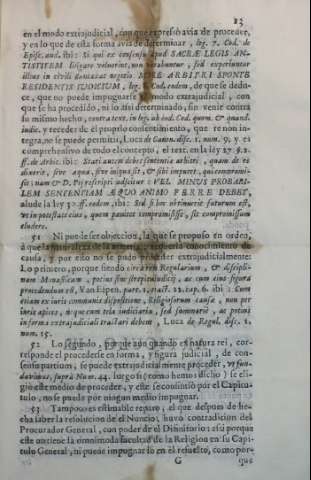 13
en el modo extrajudicial, con que expresò avia de proceder,
y en lo que de esta forma avia de determinar, leg. 7. Cod. de
Episc. aud. ibi: Si qui ex consensu apud SACRÆ LEGIS AN-
TISTITEM litigare voluerint, non vetabuntur, sed experientur
illius in civili dumtaxat negotio MORE ARBITRI SPONTE
RESIDENTIS IUDICIUM, leg. 8. Cod. eodem, de que se dedu-
ce, que no puede impugnarse el modo extrajudicial, con
que se ha procedido, ni lo assi determinado, sin venir contra
su mismo hecho, contra text. in leg. ab eod. Cod. quom. & quand.
iudic. y receder de el proprio consentimiento, que re non in-
tegra, no se puede permitir, Luca de Canon. disc. 1. num. 9. y es
comprehensivo de todo el concepto, el text. en la ley 27. §.2.
ff. de Arbit. ibi: Stari autem debet sententiæ arbitri, quam de re
dixerit, sive æqua, sive iniqua sit, & sibi imputet, qui compromi-
sit: nam & D. Pij rescripto adijcitur: VEL MINUS PROBABI-
LEM SENTENTIAM ÆQUO ANIMO FERRE DEBET,
alude la ley 3. ff. eodem, ibi: Sed si hoc obtinuerit futurum est,
ut in potestate eius, quem pænitet compromisisse, sit compromissum
eludere.
51 Ni puede ser objeccion, la que se propuso en orden,
à que la naturaleza de la materia, requeria conocimiento de
causa, y por esto no se pudo proceder extrajudicialmente:
Lo primero, porque siendo circa rem Regularium, & discipli-
nam Monasticam, potius sine strepitu iudicij, ac cum sine figura
procedendum est, Van Espen. part. 1. tract. 11. cap. 6. ibi: Cum
etiam ex iuris communis dispositione, Religiosorum causæ, non per
iuris apices, neque cum tela iudiciaria, sed summarie, ac potius
in forma extrajudiciali tractari debent, Luca de Regul. disc. 1.
num. 15.
52 Lo segundo, porque aun quando ex natura rei, cor-
responde el procederse en forma, y figura judicial, de con-
sensu partium, se puede extrajudicialmente proceder, ut fun-
davimus, suprà Num. 44. luego si (como hemos dicho) se eli-
giò este medio de proceder, y este se consintiò por el Capitu-
tulo, no se puede por ningun medio impugnar.
53 Tampoco es estimable reparo, el que despues de he-
cha saber la resolucion de el Nuncio, huvo contradicion del
Procurador General, con poder de el Difinitorio: assi porque
este obtiene la omnimoda facultad de la Religion en su Capi-
tulo General, ni puede impugnar lo en èl resuelto, como por-
G
que